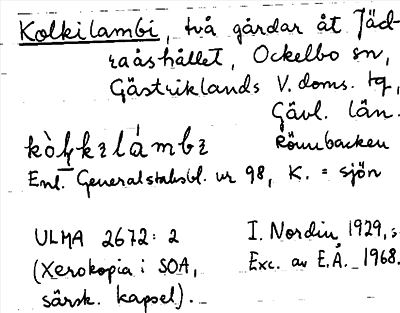 Kolkilambi, två gårdar åt Jäd-
raåshållet, Ockelbo sn,
Gästriklands V. doms. tg,
Gävl. län.
Rönnbacken
Enl. Generalstabsbl. nr 98, K. = sjön
ULMA 2672: 2
(Xerokopia i SOA,
särsk. kapsel). –
I. Nordin 1929, s.
Exc. av E.Å. 1968.